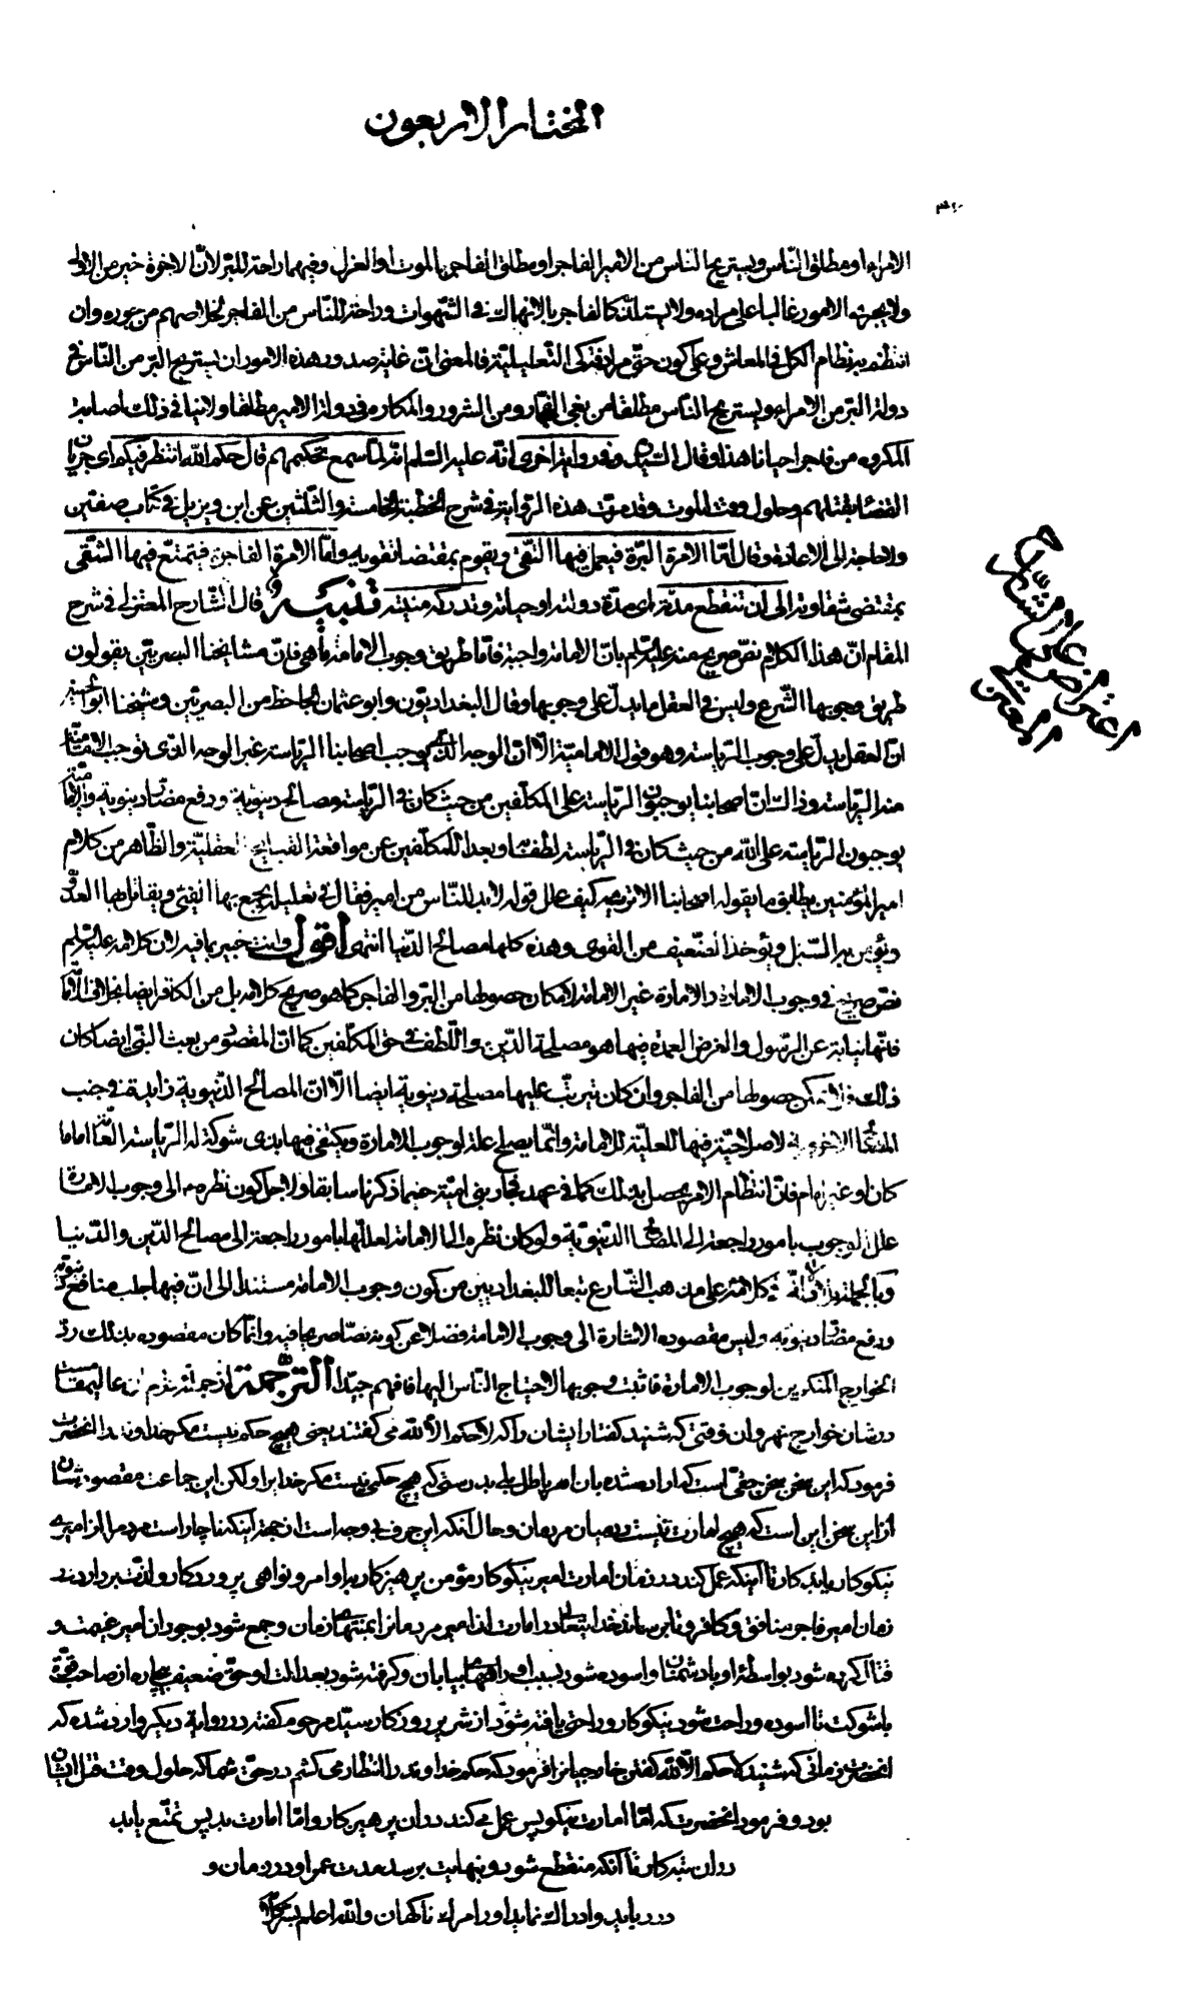 المختار الاربعون
٣٢٠
الامراء او مطلق النّاس ويستريح الناس من الامير الفاجر او مطلق الفاجر بالموت او العزل وفيهما راحة للبرّ لانّ الاخرة خير من الاولى
ولا يجرى الامور غالبا على مراده ولا يستلذّ كالفاجر بالانهماك فى الشّهوات وراحة للنّاس من الفاجر لخلاصهم من جوره وان
انتظم به نظام الكل فى المعاش وعلى كون حتّى مرادفة لكى التّعليليّة فالمعنى انّ غاية صدور هذه الامور ان يستريح البرّ من النّاس فى
دولة البرّ من الامراء ويستريح النّاس مطلقا من بغى الفجّار ومن الشرور والمكاره فى دولة الامير مطلقا ولا ينافى ذلك اصابة
المكروه من فاجر احيانا هذا وقال السّيّد ره وفى رواية اخرى انّه عليه السّلم انّه لمّا سمع تحكيمهم قال حكم اللّه انتظر فيكم اى جريان
القضاء بقتلهم وحلول وقت الموت وقد مرّت هذه الرّواية فى شرح الخطبة الخامسة والثّلثين عن ابن ويزيل فى كتاب صفّين
ولا حاجة الى الاعادة وقال امّا الامرة البرّة فيعمل فيها التّقى ويقوم بمقتضا تقويه وامّا الامرة الفاجرة فيتمتّع فيها الشّقى
بمقتضى شقاوته الى ان تنقطع مدّته اى مدّة دولته او حياته وتدركه منيّته تنبيه قال الشّارح المعتزلى فى شرح
المقام انّ هذا الكلام نصّ صريح منه عليه السّلم بانّ الامامة واجبة فامّا طريق وجوب الامامة ما هى فانّ مشايخنا البصريّين يقولون
طريق وجوبها الشّرع وليس فى العقل ما يدلّ على وجوبها وقال البغداديّون وابو عثمان الجاحظ من البصريّين وشيخنا ابو الحسين
انّ العقل يدلّ على وجوب الرّياسة وهو قول الاماميّة الّا انّ الوجه الّذى يوجب اصحابنا الرّياسة غير الوجه الّذى توجب الاماميّة
منه الرّياسة وذاك انّ اصحابنا يوجبون الرّياسة على المكلّفين من حيث كان فى الرّياسة مصالح دنيويّة ودفع مضارّ دنيويّة والاماميّة
يوجبون الرّياسة على اللّه من حيث كان فى الرّياسة لطف وبعد المكلّفين عن مواقعة القبايح العقليّة والظّاهر من كلام
امير المؤمنين يطابق ما يقوله اصحابنا الا تريه كيف علل قوله لابدّ للنّاس من امير فقال فى تعليله يجمع بها الفيئى ويقاتل بها العدوّ
ويؤمن به السّبل ويؤخذ الضّعيف من القوى وهذه كلها مصالح الدّنيا انتهى اقول وانت خبير بما فيه لان كلامه عليه السّلم
نصّ صريح فى وجوب الامارة والامارة غير الامامة لامكان حصولها من البرّ والفاجر كما هو صريح كلامه بل من الكافر ايضا بخلاف الامامة
فانّها نيابة عن الرّسول والغرض العمدة فيها هو مصلحة الدّين واللّطف فى حق المكلّفين كما انّ المقصود من بعث النّبى ايضا كان
ذلك فلا يمكن حصولها من الفاجر وان كان تترتّب عليها مصلحة دنيوية ايضا الّا انّ المصالح الدّنيوية زايدة فى جنب
المصالح الاخروية لا صلاحيّة فيها للعليّة للامامة وانّما يصلح علة لوجوب الامارة ويكتفى فيها بذى شوكة له الرّياسة العامّة اماما
كان او غير امام فانّ انتظام الامر يحصل بذلك كما فى عهد فجّار بنى اميّة حيثما ذكرنا سابقا ولاجل كون نظره الى وجوب الامارة
علل الوجوب بامور راجعة الى المصالح الدّنيويّة ولو كان نظره الى الامامة لعلّلها بامور راجعة الى مصالح الدّين والدّنيا
وبالجملة فلا دلالة فى كلامه على مذهب الشّارع تبعا للبغداديين من كون وجوب الامامة مستندا الى انّ فيها جلب منافع دنيويّة
ودفع مضارّ دنيويّة وليس مقصوده الاشارة الى وجوب الامامة فضلا عن كونه نصّا صريحا فيه وانّما كان مقصوده بذلك ردّ
الخوارج المنكرين لوجوب الامارة فاثبت وجوبها لاحتياج النّاس اليها فافهم جيّدا التّرجمة از جمله كلام ان عاليمقامست
در شان خوارج نهروان وقتى كه شنيد گفتار ايشان را كه لا حكم الا للّه مى گفتند يعنى هيچ حكم نيست مگر خداوند را انحضرت
فرمود كه اين سخن سخن حقّى است كه اراده شده بان امر باطل بلى بدرستى كه هيچ حكمى نيست مگر خدا را ولكن اين جماعت مقصودشان
از اين سخن اين است كه هيچ امارت نيست در ميان مردمان وحال انكه اين حرف بى وجه است از جهة اينكه ناچار است مردم را از اميرى
نيكوكار يا بدكار تا اينكه عمل كند در زمان امارت امير نيكوكار مؤمن پرهيزكار با وامر ونواهى پروردگار ولذّت بردارد در
زمان امير فاجر منافق وكافر وتا برساند خدايتعالى در امارت ان امير مردمانرا بمنتهاى زمان وجمع شود بوجود ان امير غنيمت و
قتال كرده شود بواسطه او با دشمنان واسوده شود بسبب او راههاى بيابان وگرفته شود بعدالت او حق ضعيف بيچاره از صاحب قوّت
با شوكت تا اسوده وراحت شود نيكوكار وراحتى يافته شود از شرير روزگار سيّد مرحوم گفته در رواية ديگر وارد شده كه
انحضرت زمانى كه شنيد لا حكم الّا للّه گفتن خارجيانرا فرمود كه حكم خداوند را انتظار مى كشم در حقّ شما كه حلول وقت قتل ايشان
بود و فرمود انحضرت كه امّا امارت نيكو پس عمل مى كند در ان پرهيزكار وامّا امارت بد پس تمتّع يابد
در ان بدكار تا انكه منقطع شود و بنهايت برسد مدت عمر او در زمان و
دريابد وادراك نمايد او را مرك ناگهان واللّه اعلم
اعتراض على الشارح المعتزلى